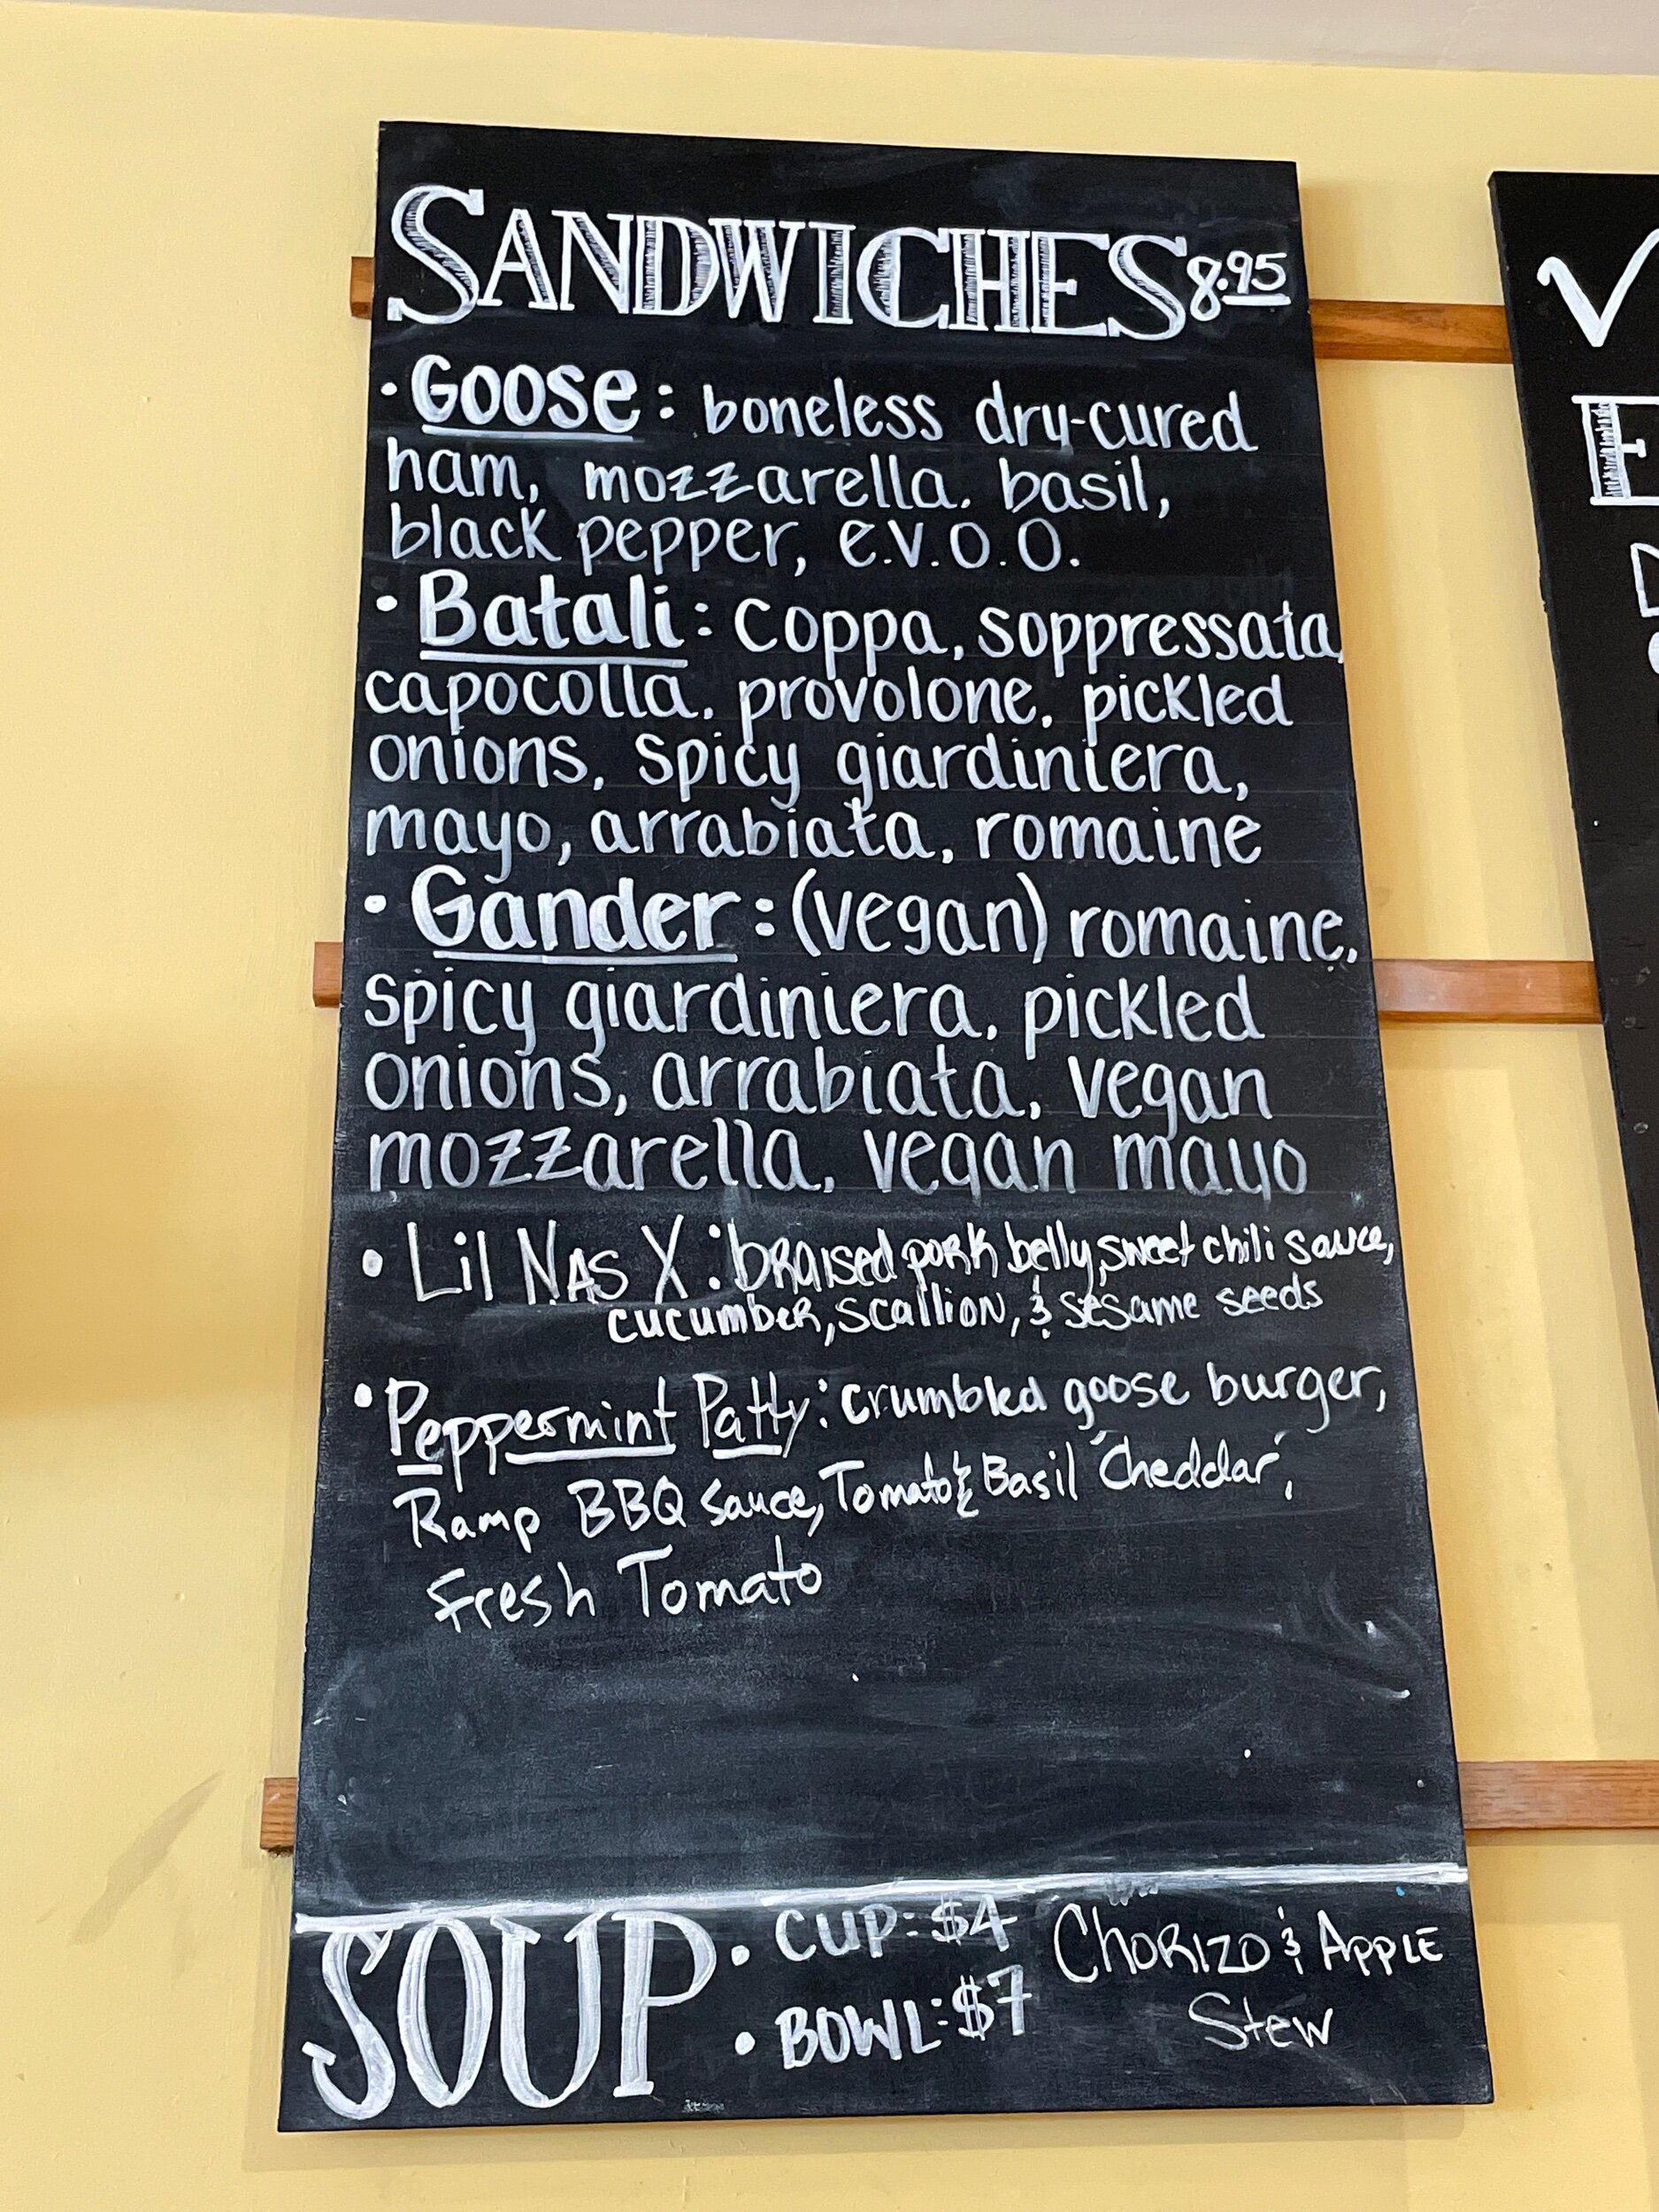 SANDWICHES 8.95
• Goose: boneless dry-cured
ham, mozzarella, basil,
black pepper, e.v.o.o.
• Batali: coppa, soppressata,
capocolla, provolone, pickled
onions, spicy giardiniera,
mayo, arrabiata, romaine
• Gander: (vegan) romaine,
spicy giardiniera, pickled
onions, arrabiata, vegan
mozzarella, vegan mayo
• Lil NAS X: braised pork belly, sweet chili sauce,
cucumber, scallion, & sesame seeds
• Peppermint Patty: crumbled goose burger,
Ramp BBQ Sauce, Tomato & Basil "Cheddar",
Fresh Tomato
SOUP
• CUP: $4
• BOWL: $7
CHORIZO & APPLE
Stew